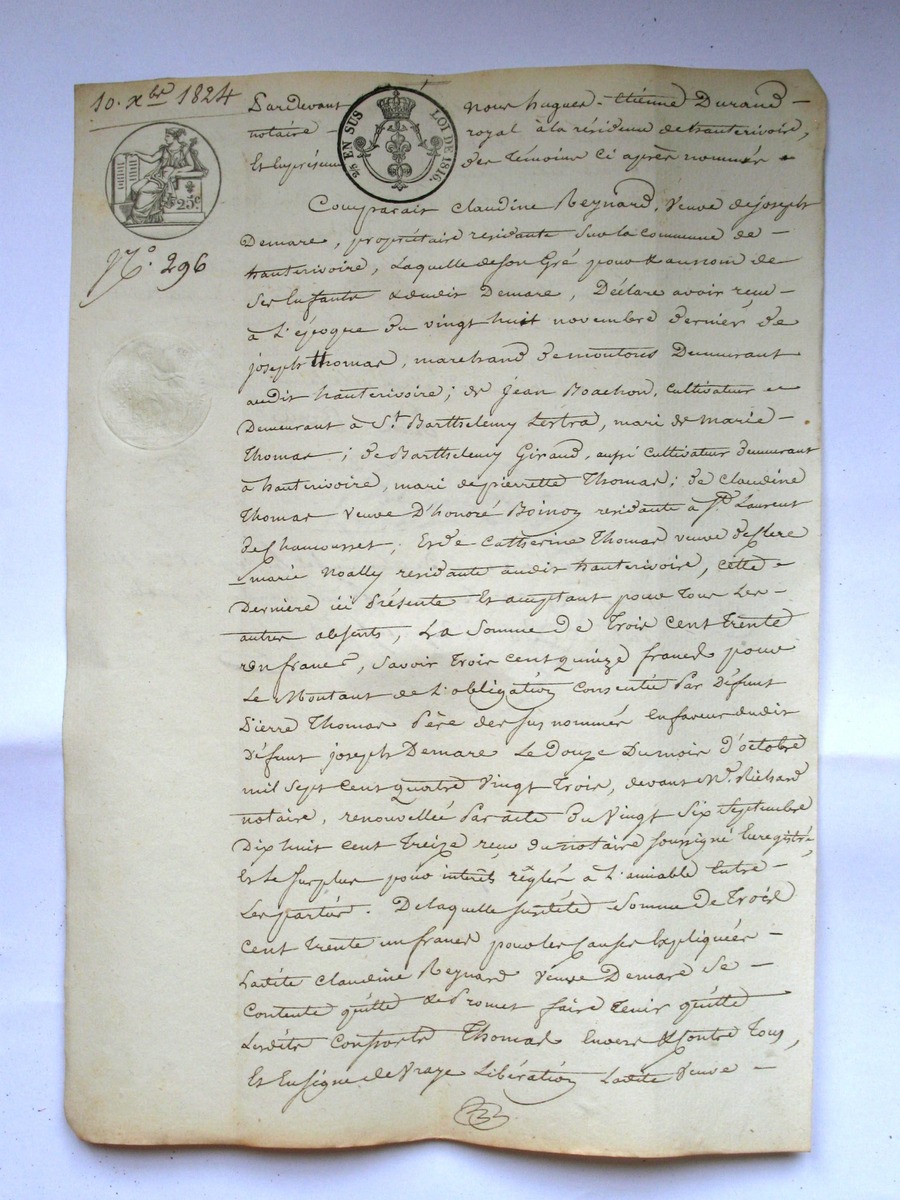 10. xbre 1824
Pardevant nous hugues-Etienne Durand -
notaire - royal à la résidence de hauterivoire,
Et En présence des témoins ci après nommés -
2/5 EN SUS LOI DE 1816.
25c
N.° 296
Comparait Claudine Reynard, veuve de joseph
Demare, propriétaire residante sur la commune de -
hauterivoire, Laquelle de son Gré pour & au nom de
Ses Enfants & dudit Demare, Déclare avoir reçu -
à l'époque du vingt huit novembre dernier de
joseph thomas, marchand de moutons Demeurant
audit hauterivoire; de jean Boachon, cultivateur -
Demeurant à St. Barthelemy Lestra, mari de marie -
Thomas; de Barthelemy Giraud, aussi cultivateur demeurant
à hauterivoire, mari de pierrette Thomas; de claudine
Thomas veuve D'honoré Boinoy residante à St. Laurent
de Chamousset; Et de Catherine Thomas veuve de
marie Noally residante audit hauterivoire, cette -
Dernière ici Présente Et acceptant pour tous Les -
autres absents, La Somme de Trois cent trente
un francs, savoir trois cent quinze francs pour
Le Montant de L'obligation Consentie Par Défunt
Pierre Thomas Père des sus nommés En faveur dudit
Défunt joseph Demare Le Douze Du mois D'octobre
mil Sept Cent quatre Vingt Trois, devant Me. Richard
notaire, renouvellée Par acte du Vingt Six Septembre
Dix huit cent treize reçu du Notaire soussigné Enregistré,
Et Le surplus pour intérêts réglés à L'amiable Entre -
Les parties. De laquelle susdite Somme de Trois
Cent trente un francs pour les causes Expliquées -
Ladite Claudine Reynard veuve Demare Se -
Contente quitte & Promet faire tenir quitte
Lesdits Consorts Thomas Envers & Contre Tous,
Et En Signe de Vraye Libération Ladite Veuve -